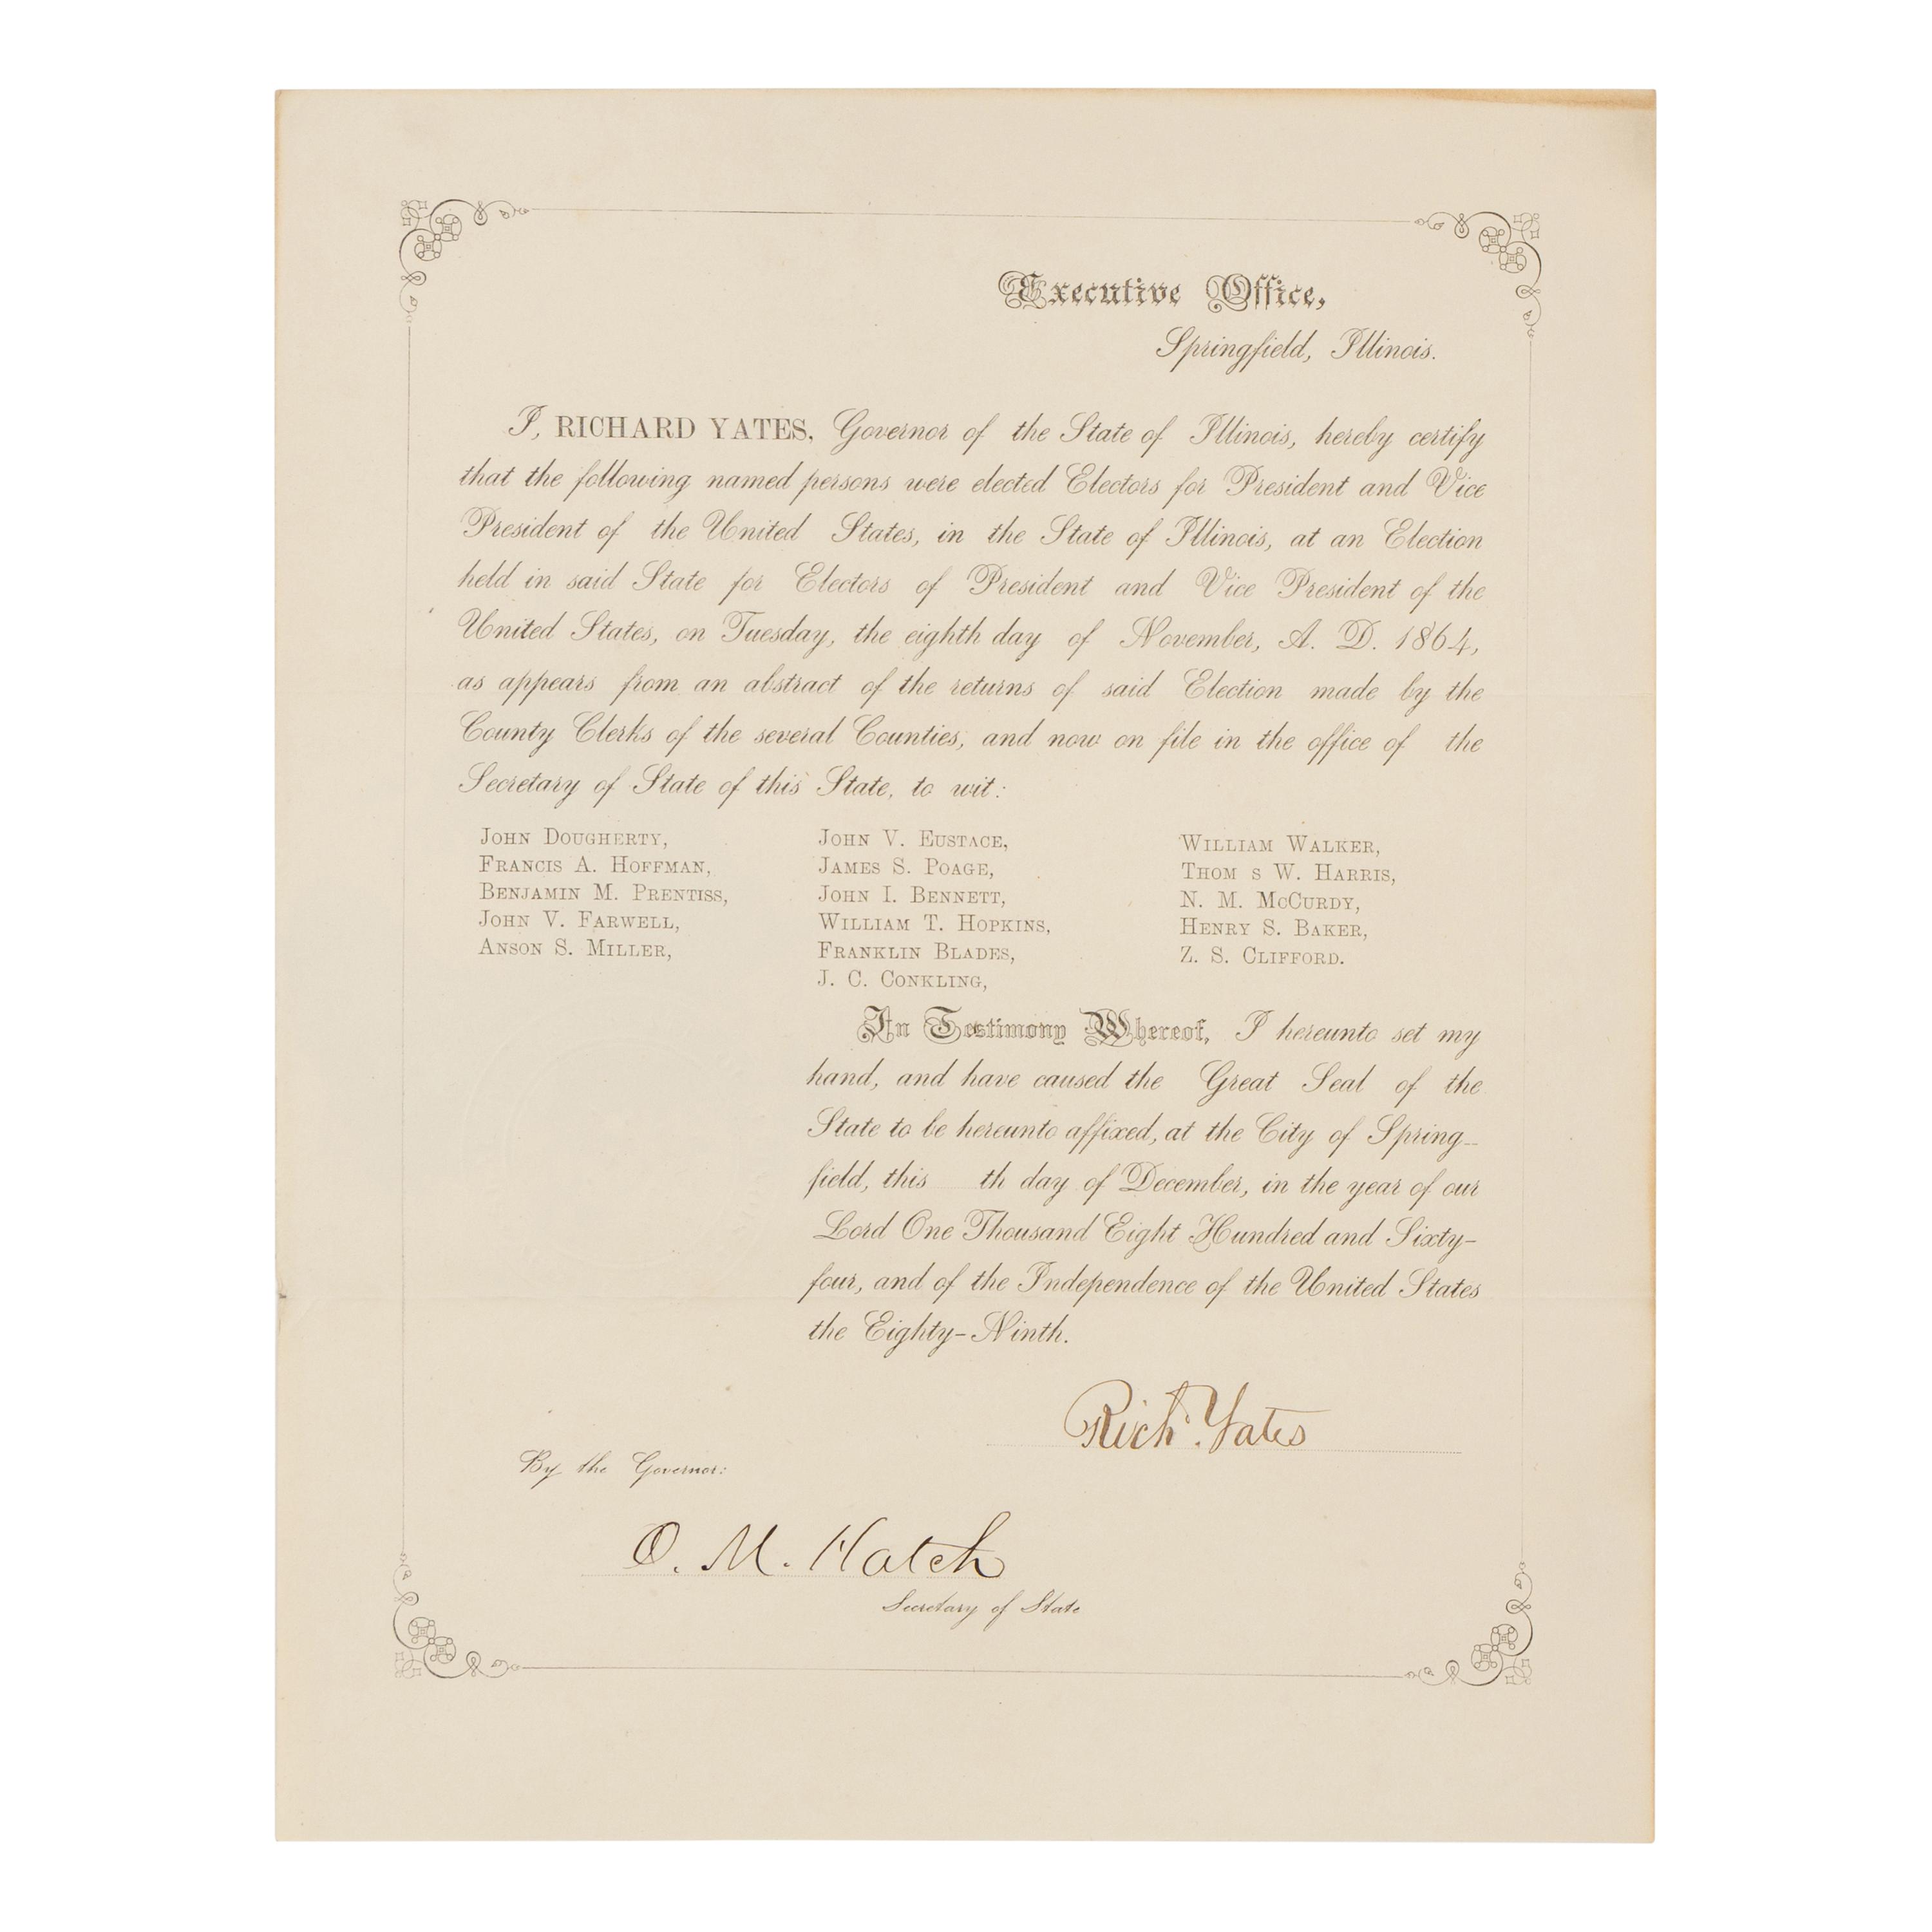 Executive Office,
Springfield, Illinois.
I, RICHARD YATES, Governor of the State of Illinois, hereby certify
that the following named persons were elected Electors for President and Vice
President of the United States, in the State of Illinois, at an Election
held in said State for Electors of President and Vice President of the
United States, on Tuesday, the eighth day of November, A. D. 1864,
as appears from an abstract of the returns of said Election made by the
County Clerks of the several Counties, and now on file in the office of the
Secretary of State of this State, to wit:
JOHN DOUGHERTY,
FRANCIS A. HOFFMAN,
BENJAMIN M. PRENTISS,
JOHN V. FARWELL,
ANSON S. MILLER,
JOHN V. EUSTACE,
JAMES S. POAGE,
JOHN I. BENNETT,
WILLIAM T. HOPKINS,
FRANKLIN BLADES,
J. C. CONKLING,
WILLIAM WALKER,
THOM S W. HARRIS,
N. M. MCCURDY,
HENRY S. BAKER,
Z. S. CLIFFORD.
In Testimony Whereof, I hereunto set my
hand, and have caused the Great Seal of the
State to be hereunto affixed, at the City of Spring-
field, this th day of December, in the year of our
Lord One Thousand Eight Hundred and Sixty-
four, and of the Independence of the United States
the Eighty-Ninth.
Richd. Yates
By the Governor:
O. M. Hatch
Secretary of State